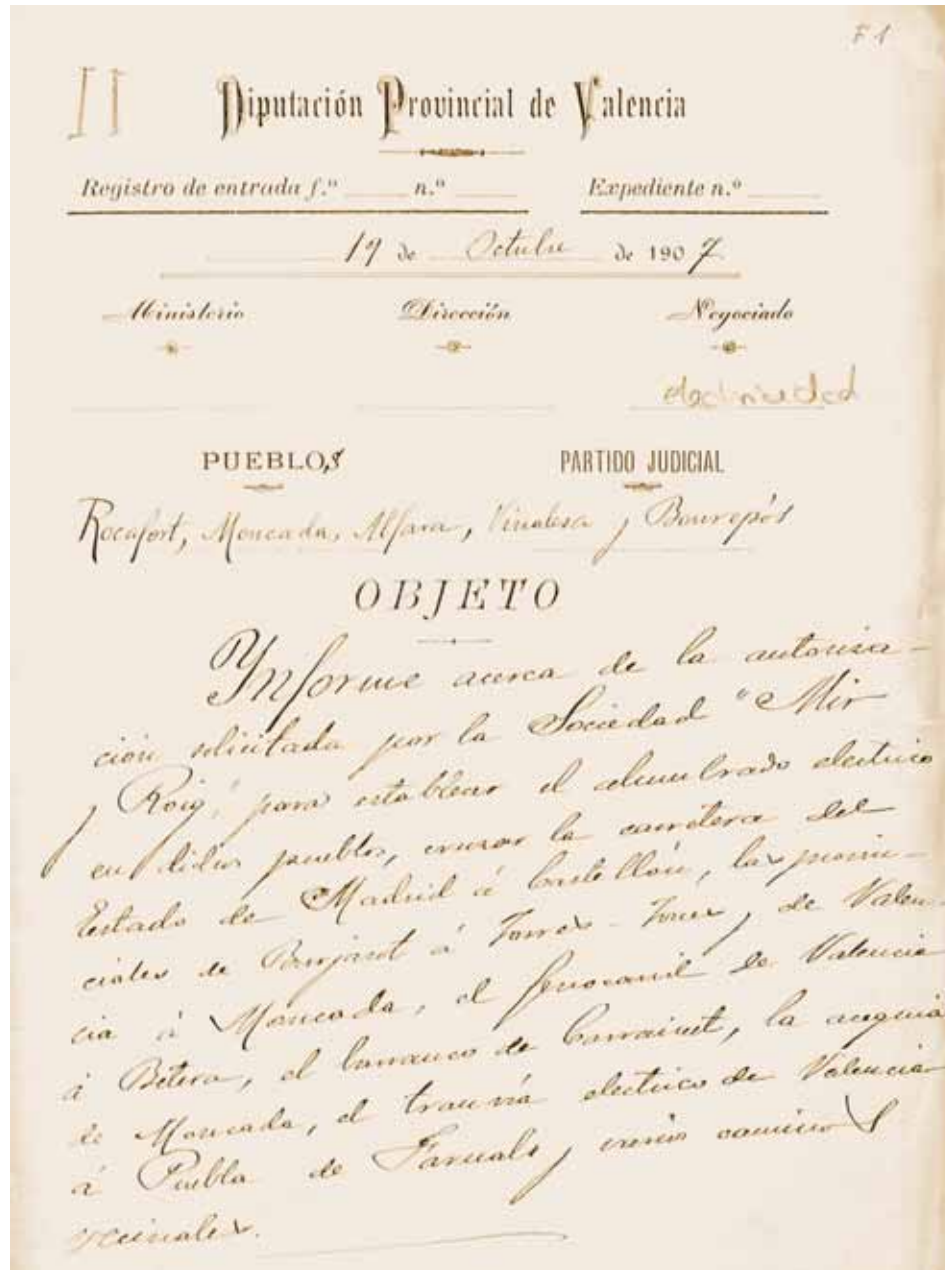 F 1
II Diputación Provincial de Valencia
Registro de entrada f.º n.º Expediente n.º
19 de Octubre de 1907
Ministerio Dirección Negociado
electricidad
PUEBLOS PARTIDO JUDICIAL
Rocafort, Moncada, Alfara, Vinalesa y Bonrepós
OBJETO
Informe acerca de la autoriza-
ción solicitada por la Sociedad "Mir
y Roig", para establecer el alumbrado electrico
en dichos pueblos, cruzar la carretera del
Estado de Madrid á Castellón, las provin-
ciales de Burjasot á Torres-Torres y de Valen-
cia á Moncada, el ferrocarril de Valencia
á Bétera, el barranco de Carraixet, la acequia
de Moncada, el tranvía electrico de Valencia
á Puebla de Farnals y caminos
vecinales.